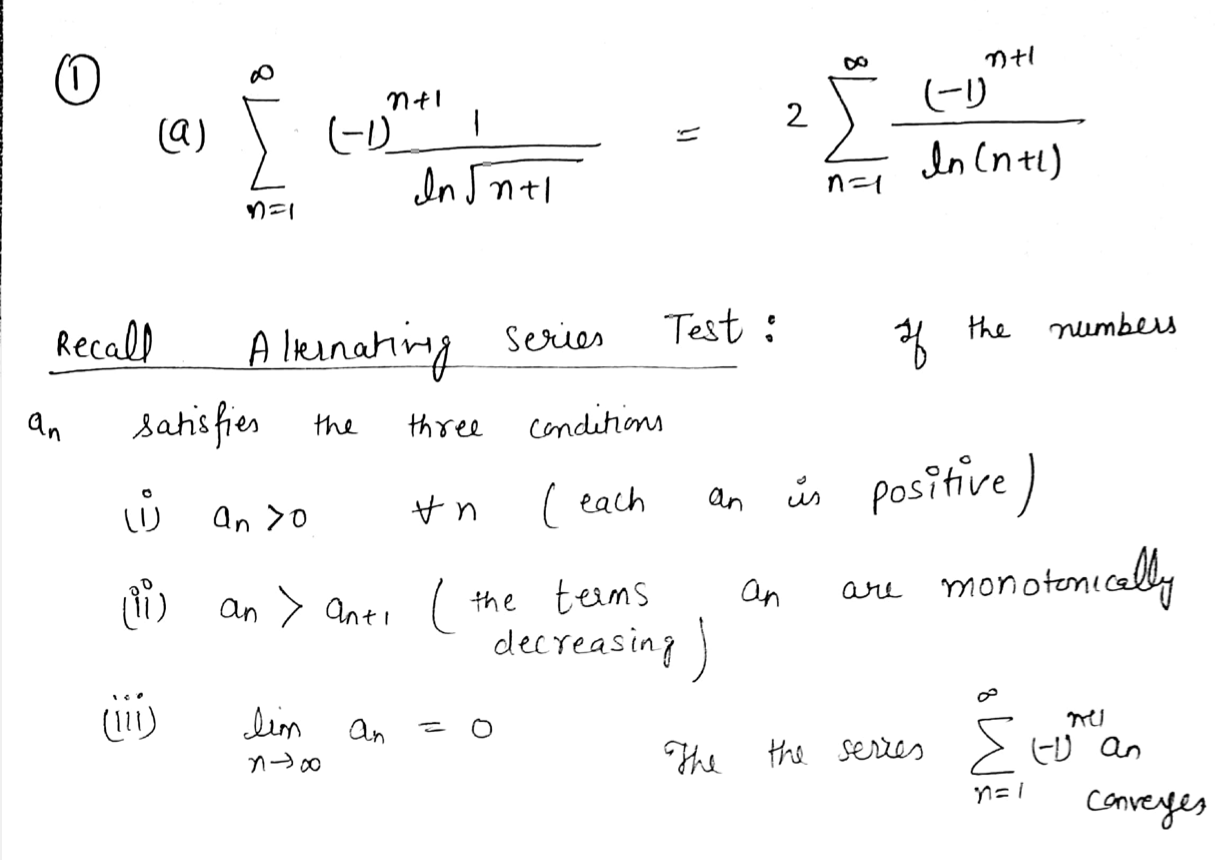 ①
(a) ∑_{n=1}^{∞} (-1)^{n+1} 1/(ln √(n+1)) = 2 ∑_{n=1}^{∞} (-1)^{n+1}/(ln (n+1))
Recall Alternating Series Test : If the numbers
an satisfies the three conditions
(i) an >0 ∀ n ( each an is positive )
(ii) an > an+1 ( the terms an are monotonically
decreasing )
(iii) lim_{n→∞} an = 0 The the series ∑_{n=1}^{∞} (-1)^{n+1} an
converges